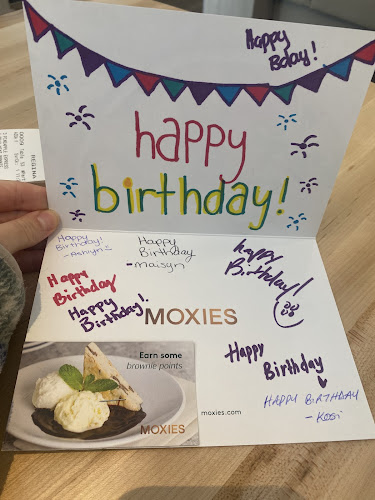 Happy
Bday!
happy
birthday!
Happy
Birthday!
-Ashlyn
Happy
Birthday
-Maisyn
happy
Birthday!
Happy
Birthday
Happy
Birthday!
MOXIES
Happy
Birthday
HAPPY BIRTHDAY
-Kosi
Earn some
brownie points
MOXIES
moxies.com
REGINA